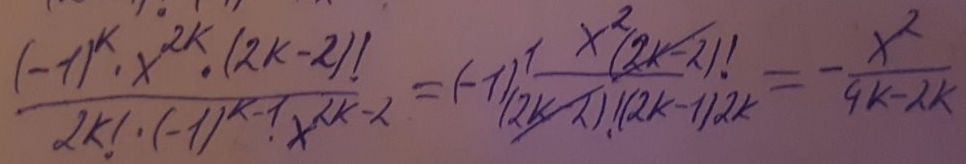 (-1)^k · x^{2k} · (2k-2)! / 2k! · (-1)^{k-1} x^{2k-2} = (-1)^1 x^2 (2k-2)! / (2k-2)! (2k-1) 2k = - x^2 / 4k-2k